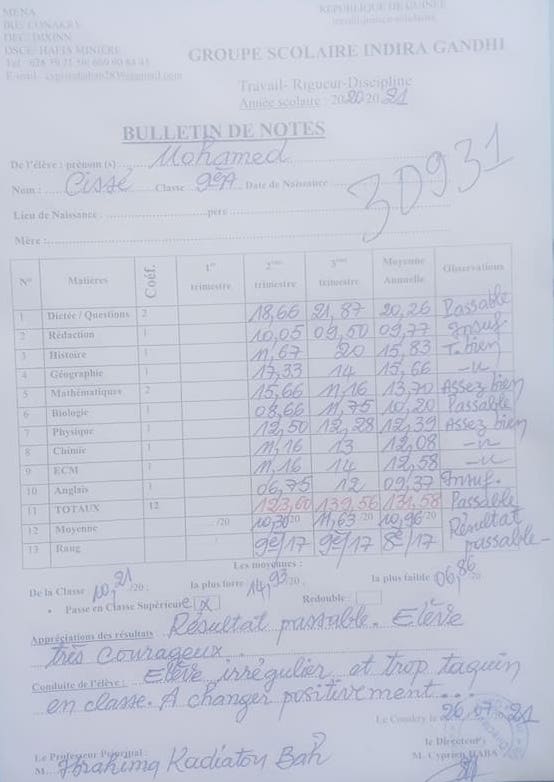 MENA
REPUBLIQUE DE GUINEE
DCE: DIXINN
DSCE: HAFIA MINIÈRE
GROUPE SCOLAIRE INDIRA GANDHI
Travail- Rigueur-Discipline
Année scolaire : 2020-2021
BULLETIN DE NOTES
De l'élève : prénom (s) Mohamed
Nom : Cissé Classe 9eA Date de Naissance
30931
Lieu de Naissance : père
Mère :
N° Matières Coéf. 1er trimestre 2ème trimestre 3ème trimestre Moyenne Annuelle Observations
1 Dictée / Questions 2 18,66 21,87 20,26 Passable
2 Rédaction 1 10,05 09,50 09,77 Insuf.
3 Histoire 1 11,67 20 15,83 T. bien
4 Géographie 1 17,33 14 15,66 -"-
5 Mathématiques 2 15,66 11,16 13,70 Assez bien
6 Biologie 1 08,66 11,75 10,20 Passable
7 Physique 1 12,50 12,28 12,39 Assez bien
8 Chimie 1 11,16 13 12,08 -"-
9 ECM 1 11,16 14 12,58 -"-
10 Anglais 1 06,75 12 09,37 Insuf.
11 TOTAUX 12 123,60 139,56 131,58 Passable
12 Moyenne ./20 10,30/20 11,63/20 10,96/20 Résultat
13 Rang 9e/17 9e/17 8e/17 passable
Les moyennes :
De la Classe 10,21/20 ; la plus forte : 14,93/20 ; la plus faible 06,86/20
• Passe en Classe Supérieure x Redouble :
Appréciations des résultats Résultat passable. Elève
très courageux.
Conduite de l'élève : Elève irrégulier et trop taquin
en classe. A changer positivement...
Le Conakry, le 26/07/21
Le Professeur Principal : le Directeur :
M. Ibrahima Kadiatou Bah M. Cyprien HABA